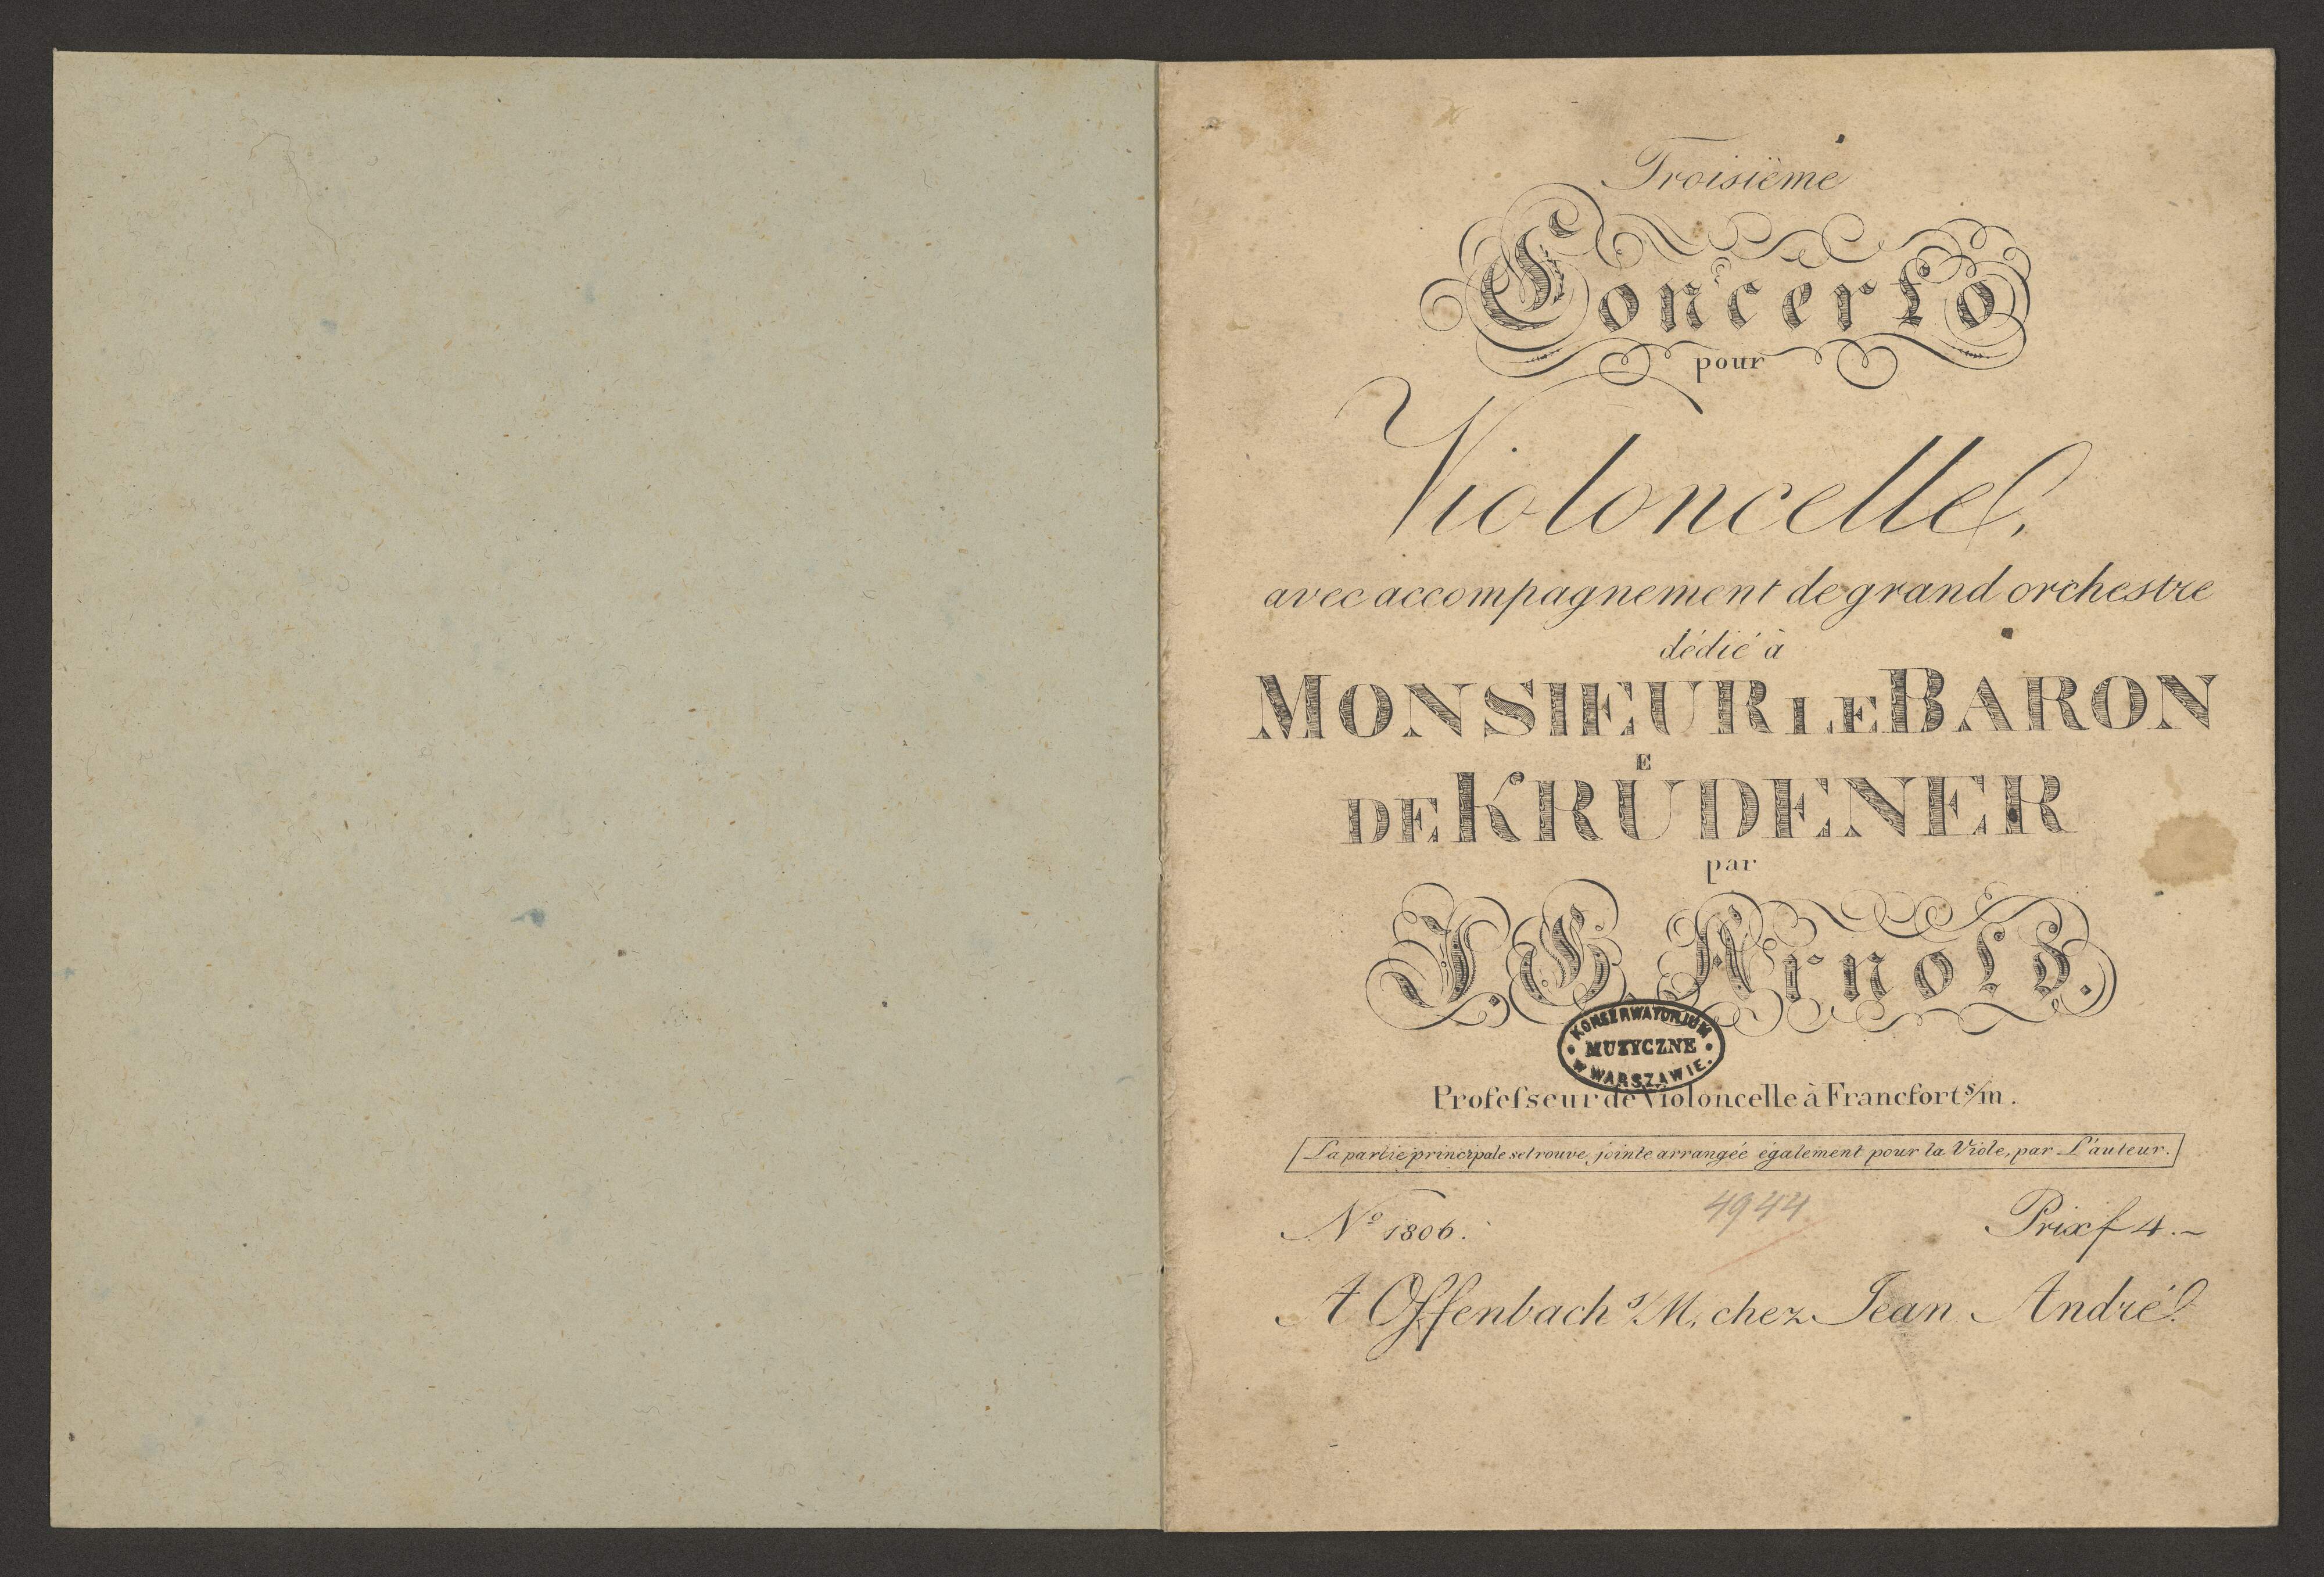 Troisième
Concerto
pour
Violoncelle,
avec accompagnement de grand orchestre
dédié à
MONSIEUR LE BARON
DE KRUͤDENER
par
J. G. Arnold.
KONSERWATORJUM
MUZYCZNE
W WARSZAWIE.
Profeſseur de Violoncelle à Francfort s/m.
La partie principale se trouve jointe arrangée également pour la Viole, par L'auteur.
4944
Nº 1806. Prix f 4.~
A Offenbach s/M, chez Jean André.